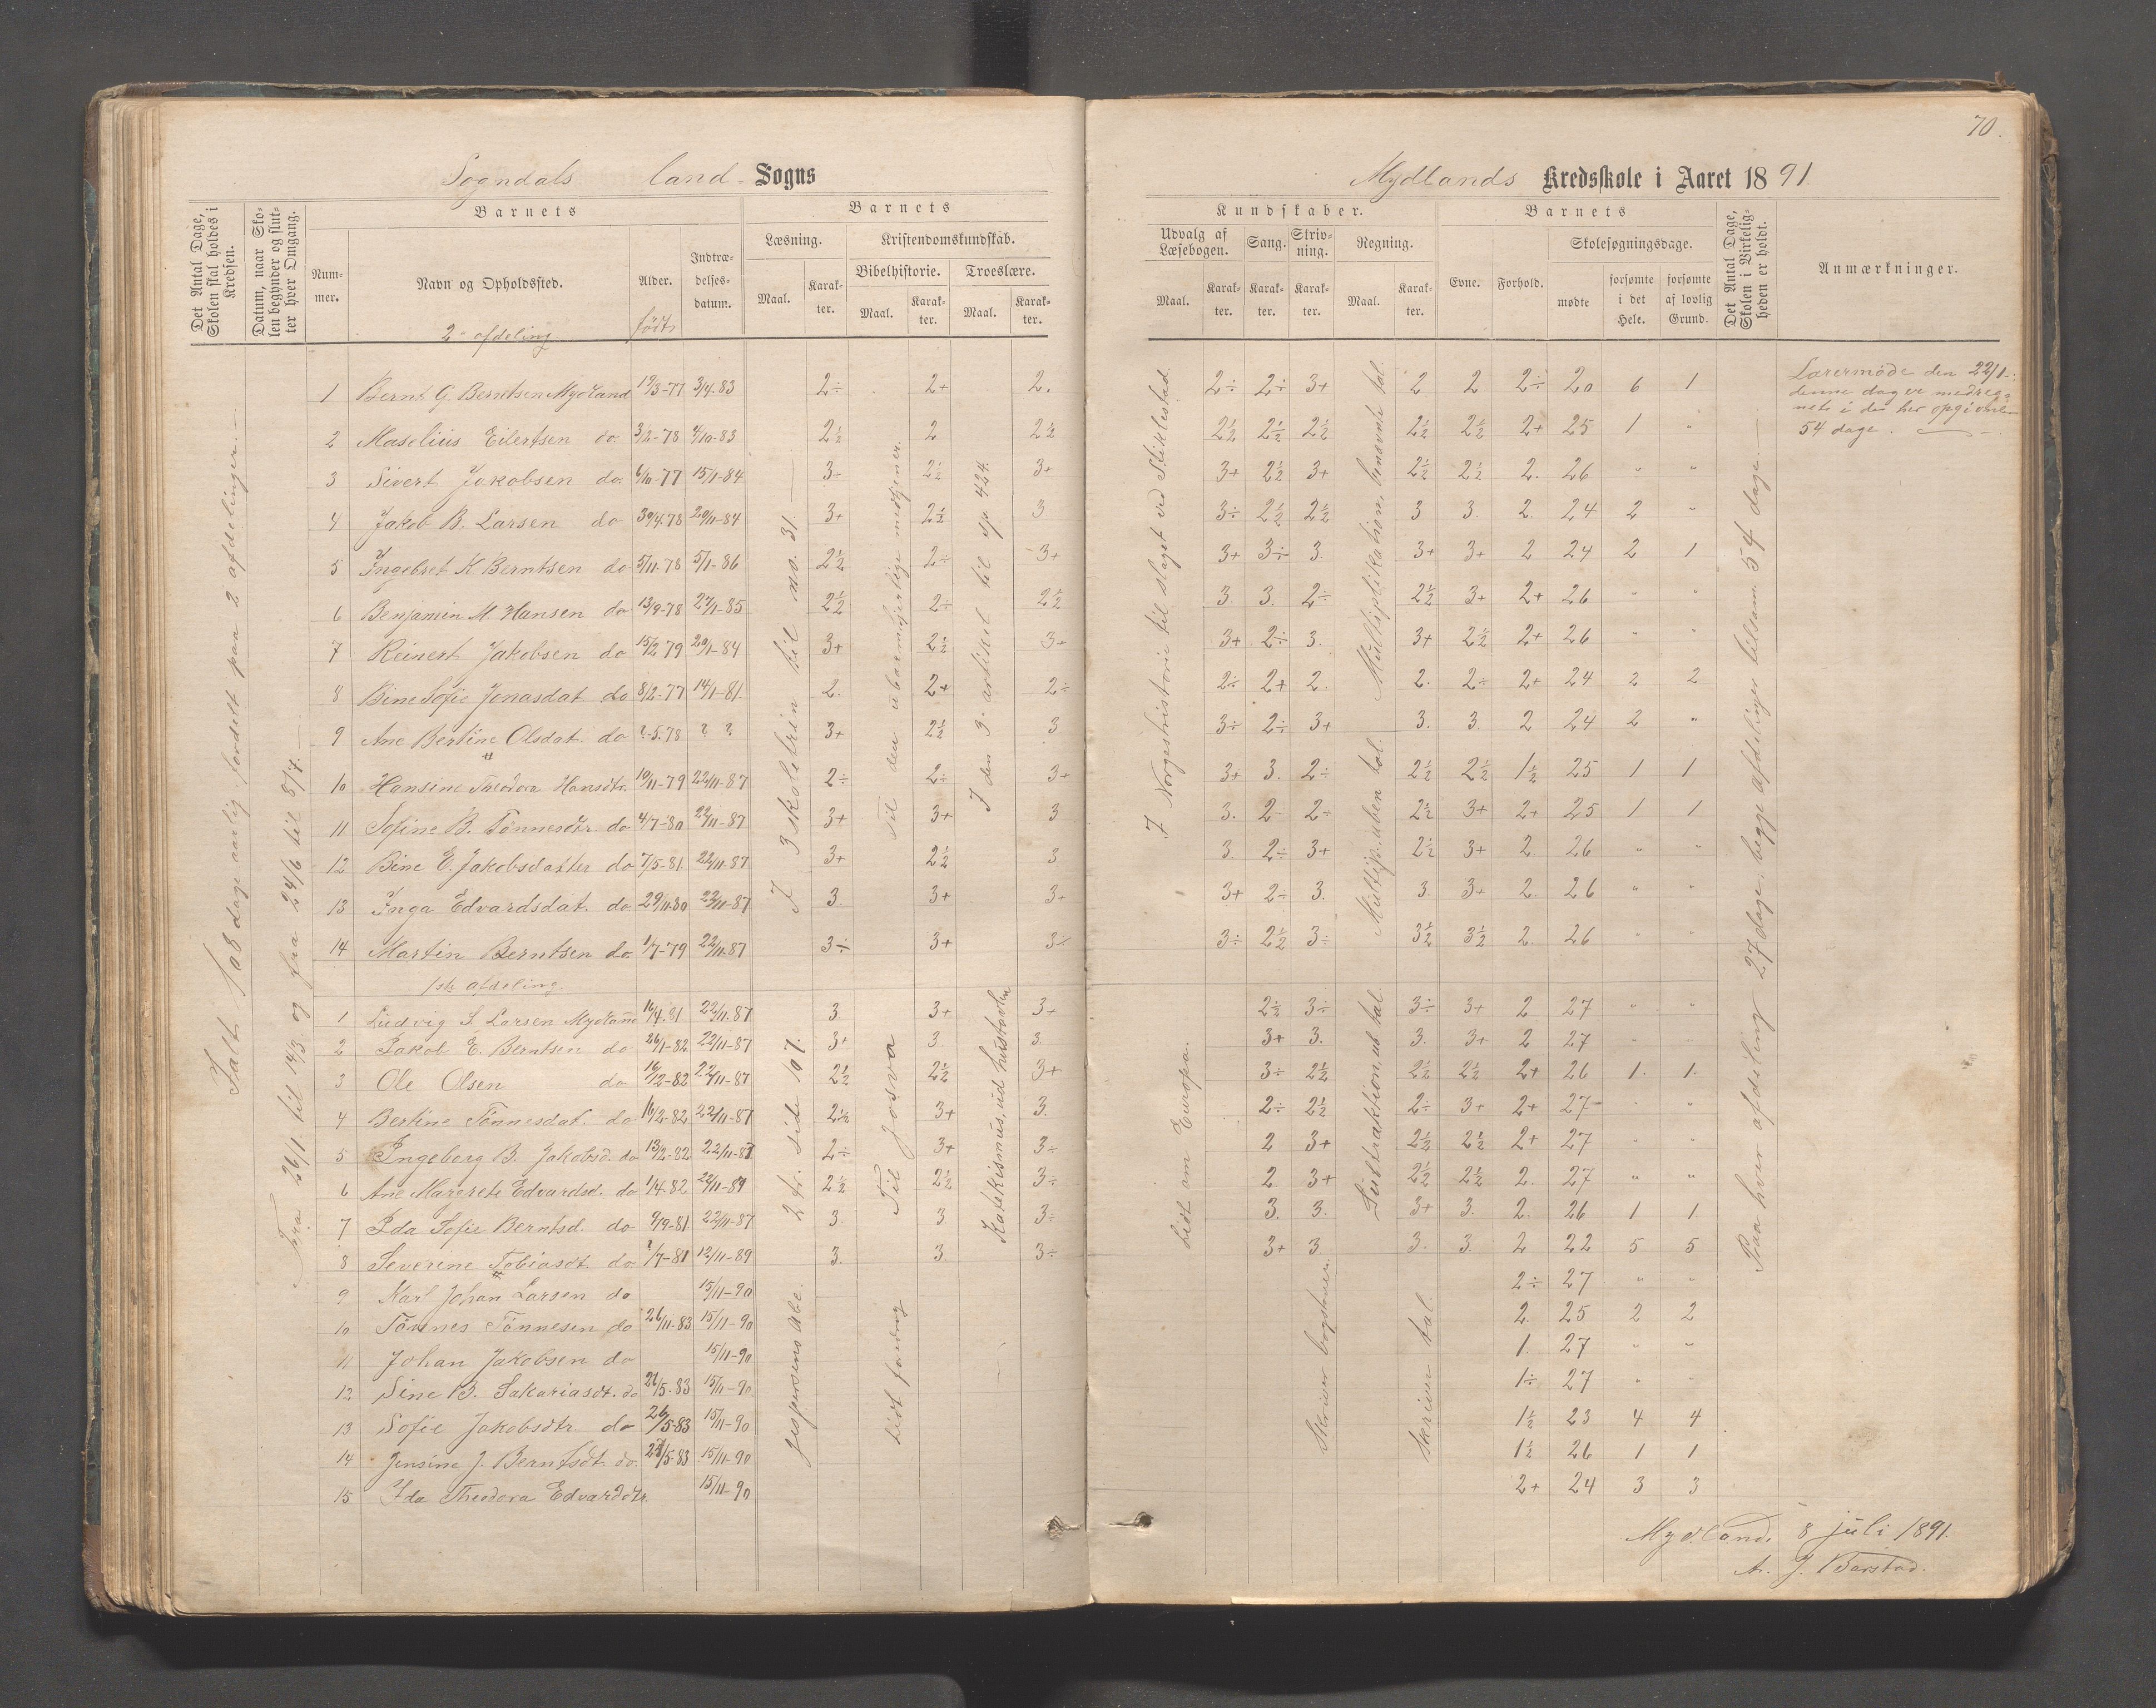 70.
Sogndals land Sogns
Mydlands Kredsskole i Aaret 1891.
Det Antal Dage, Skolen skal holdes i Kredsen.
Datum, naar Skolen begynder og slutter hver Omgang.
Barnets
Nummer.
Navn og Opholdssted.
Alder.
født
Indtrædelsesdatum.
Barnets
Læsning.
Kristendomskundskab.
Bibelhistorie.
Troeslære.
Maal. Karakter. Maal. Karakter. Maal. Karakter.
Kundskaber.
Udvalg af Læsebogen. Sang. Skrivning. Regning.
Maal. Karakter. Karakter. Karakter. Maal. Karakter.
Barnets
Evne. Forhold. Skolesøgningsdage.
mødte forsømte i det Hele. forsømte af lovlig Grund.
Det Antal Dage, Skolen i Virkeligheden er holdt.
Anmærkninger.
2- afdeling.
1 Bernt G. Berntsen Mydland 19/3-77 3/4.83 2÷ 2+ 2. 2÷ 2÷ 3+ 2 2 2÷ 20 6 1
2 Maselius Eilertsen do 3/2-78 4/10-83 2½ 2 2½ 2½ 2½ 2½ 2½ 2½ 2+ 25 1 "
3 Sivert Jakobsen do. 6/10-77 15/1-84 3÷ 2½ 3+ 3+ 2½ 3+ 2½ 2½ 2. 26 " "
4 Jakob B. Larsen do 30/4.78 20/11-84 3+ 2½ 3 3÷ 2½ 2½ 3 3. 2. 24 2 "
5 Ingebret K Berntsen do 5/11.78 5/1-86 2½ 2÷ 3+ 3+ 3÷ 3. 3+ 3+ 2 24 2 1
6 Benjamin M. Hansen do 13/9-78 27/1-85 2½ 2÷ 2½ 3. 3. 2÷ 2½ 3+ 2+ 26 " "
7 Reinert Jakobsen do 15/2 79 20/1-84 3+ 2½ 3+ 3+ 2÷ 3. 3+ 2½ 2+ 26 " "
8 Bine Sofie Jonasdat. do 8/2-77 14/1-81 2. 2+ 2÷ 2÷ 2+ 2. 2. 2÷ 2+ 24 2 2
9 Ane Bertine Olsdat. do ?-5.78 ? ? 3+ 2½ 3 3÷ 2÷ 3+ 3. 3. 2 24 2 "
10 Hansine Theodora Hansdtr. 10/11-79 22/11-87 2÷ 2÷ 3+ 3+ 3. 2÷ 2½ 2½ 1½ 25 1 1
11 Sofine B. Tönnesdtr. do 4/7-80 22/11-87 3+ 3+ 3 3. 2- 2÷ 2½ 3+ 2+ 25 1 1
12 Bine E. Jakobsdatter do 7/5-81 22/11.87 3+ 2½ 3 3. 2÷ 3+ 2½ 3+ 2 26 " "
13 Inga Edvardsdat. do 29/11.80 22/11-87 3. 3+ 3+ 3+ 2÷ 3. 3. 3+ 2 26 " "
14 Martin Berntsen do 1/7-79 22/11.87 3÷ 3+ 3÷ 3÷ 2½ 3÷ 3½ 3½ 2. 26 " "
1ste afdeling.
1 Ludvig S. Larsen Mydland 16/4.81 22/11.87 3. 3+ 3+ 2½ 3÷ 3÷ 3+ 2 27 " "
2 Jakob E. Berntsen do 26/1-82 22/11-87 3+ 3. 3. 3+ 3. 3. 3+ 2 27 "
3 Ole Olsen do 16/12-82 22/11-87 2½ 2½ 3+ 3÷ 2½ 2½ 2½ 2+ 26 1. 1.
4 Bertine Tönnesdat. do 16/2-82 22/11-87 2½ 3+ 3. 2÷ 2½ 2÷ 3+ 2+ 27 " "
5 Ingeborg B. Jakobsd. do 13/2-82 22/11-87 2÷ 3+ 3÷ 2 3+ 2½ 2½ 2+ 27 " "
6 Ane Margrete Edvardsd. do 1/4.82 22/11-87 2½ 2½ 3÷ 2 3+ 2½ 2½ 2. 27 " "
7 Ida Sofie Berntsd. do 9/9-81 22/11-87 3. 3. 3÷ 3. 3. 3+ 3. 2. 26 1 1
8 Severine Tobiasdt. do ?/7-81 12/11-89 3. 3. 3÷ 3+ 3. 3. 3. 2 22 5 5
9 Karl Johan Larsen do 15/11-90 2÷ 27 " "
10 Tönnes Tönnesen do 26/11-83 15/11-90 2. 25 2 2
11 Johan Jakobsen do 15/11-90 1. 27 " "
12 Sine B. Sakariasdt. do 21/5-83 15/11-90 1÷ 27 " "
13 Sofie Jakobsdtr. do 26/5-83 15/11-90 1½ 23 4 4
14 Jensine J. Berntsdt. do. 15/11-90 1½ 26 1 1
15 Ida Theodora Edvardsdtr. 15/11-90 2+ 24 3 3
Ialt 108 dage aarlig fordelt paa 2 afdelinger.
Fra 26/1 til 14/3 og fra 24/6 til 8/7.
I 3 skoletrin til no. 31.
Til den ubarmhjertige medtjener.
I den 3. artikel til sp. 424.
2 tr. side 107.
Til Josva
Katekismus, ud hustavlen
Jespersens Abc.
Lidt
I Norgeshistorie til slaget ved Stiklestad.
Multiplikation, benævnte tal.
Multip. uben. tal.
Lidt om Europa.
Subtraktion, ub. tal.
Skriver bogstaver.
Skriver tal.
Paa hver afdeling 27 dage, begge afdelinger tilsam. 54 dage.
Lærermøde den 22/1.
denne dag er medreg-
net i de her opgivne
54 dage.
Mydland, 8 juli 1891.
A. J. Barstad.